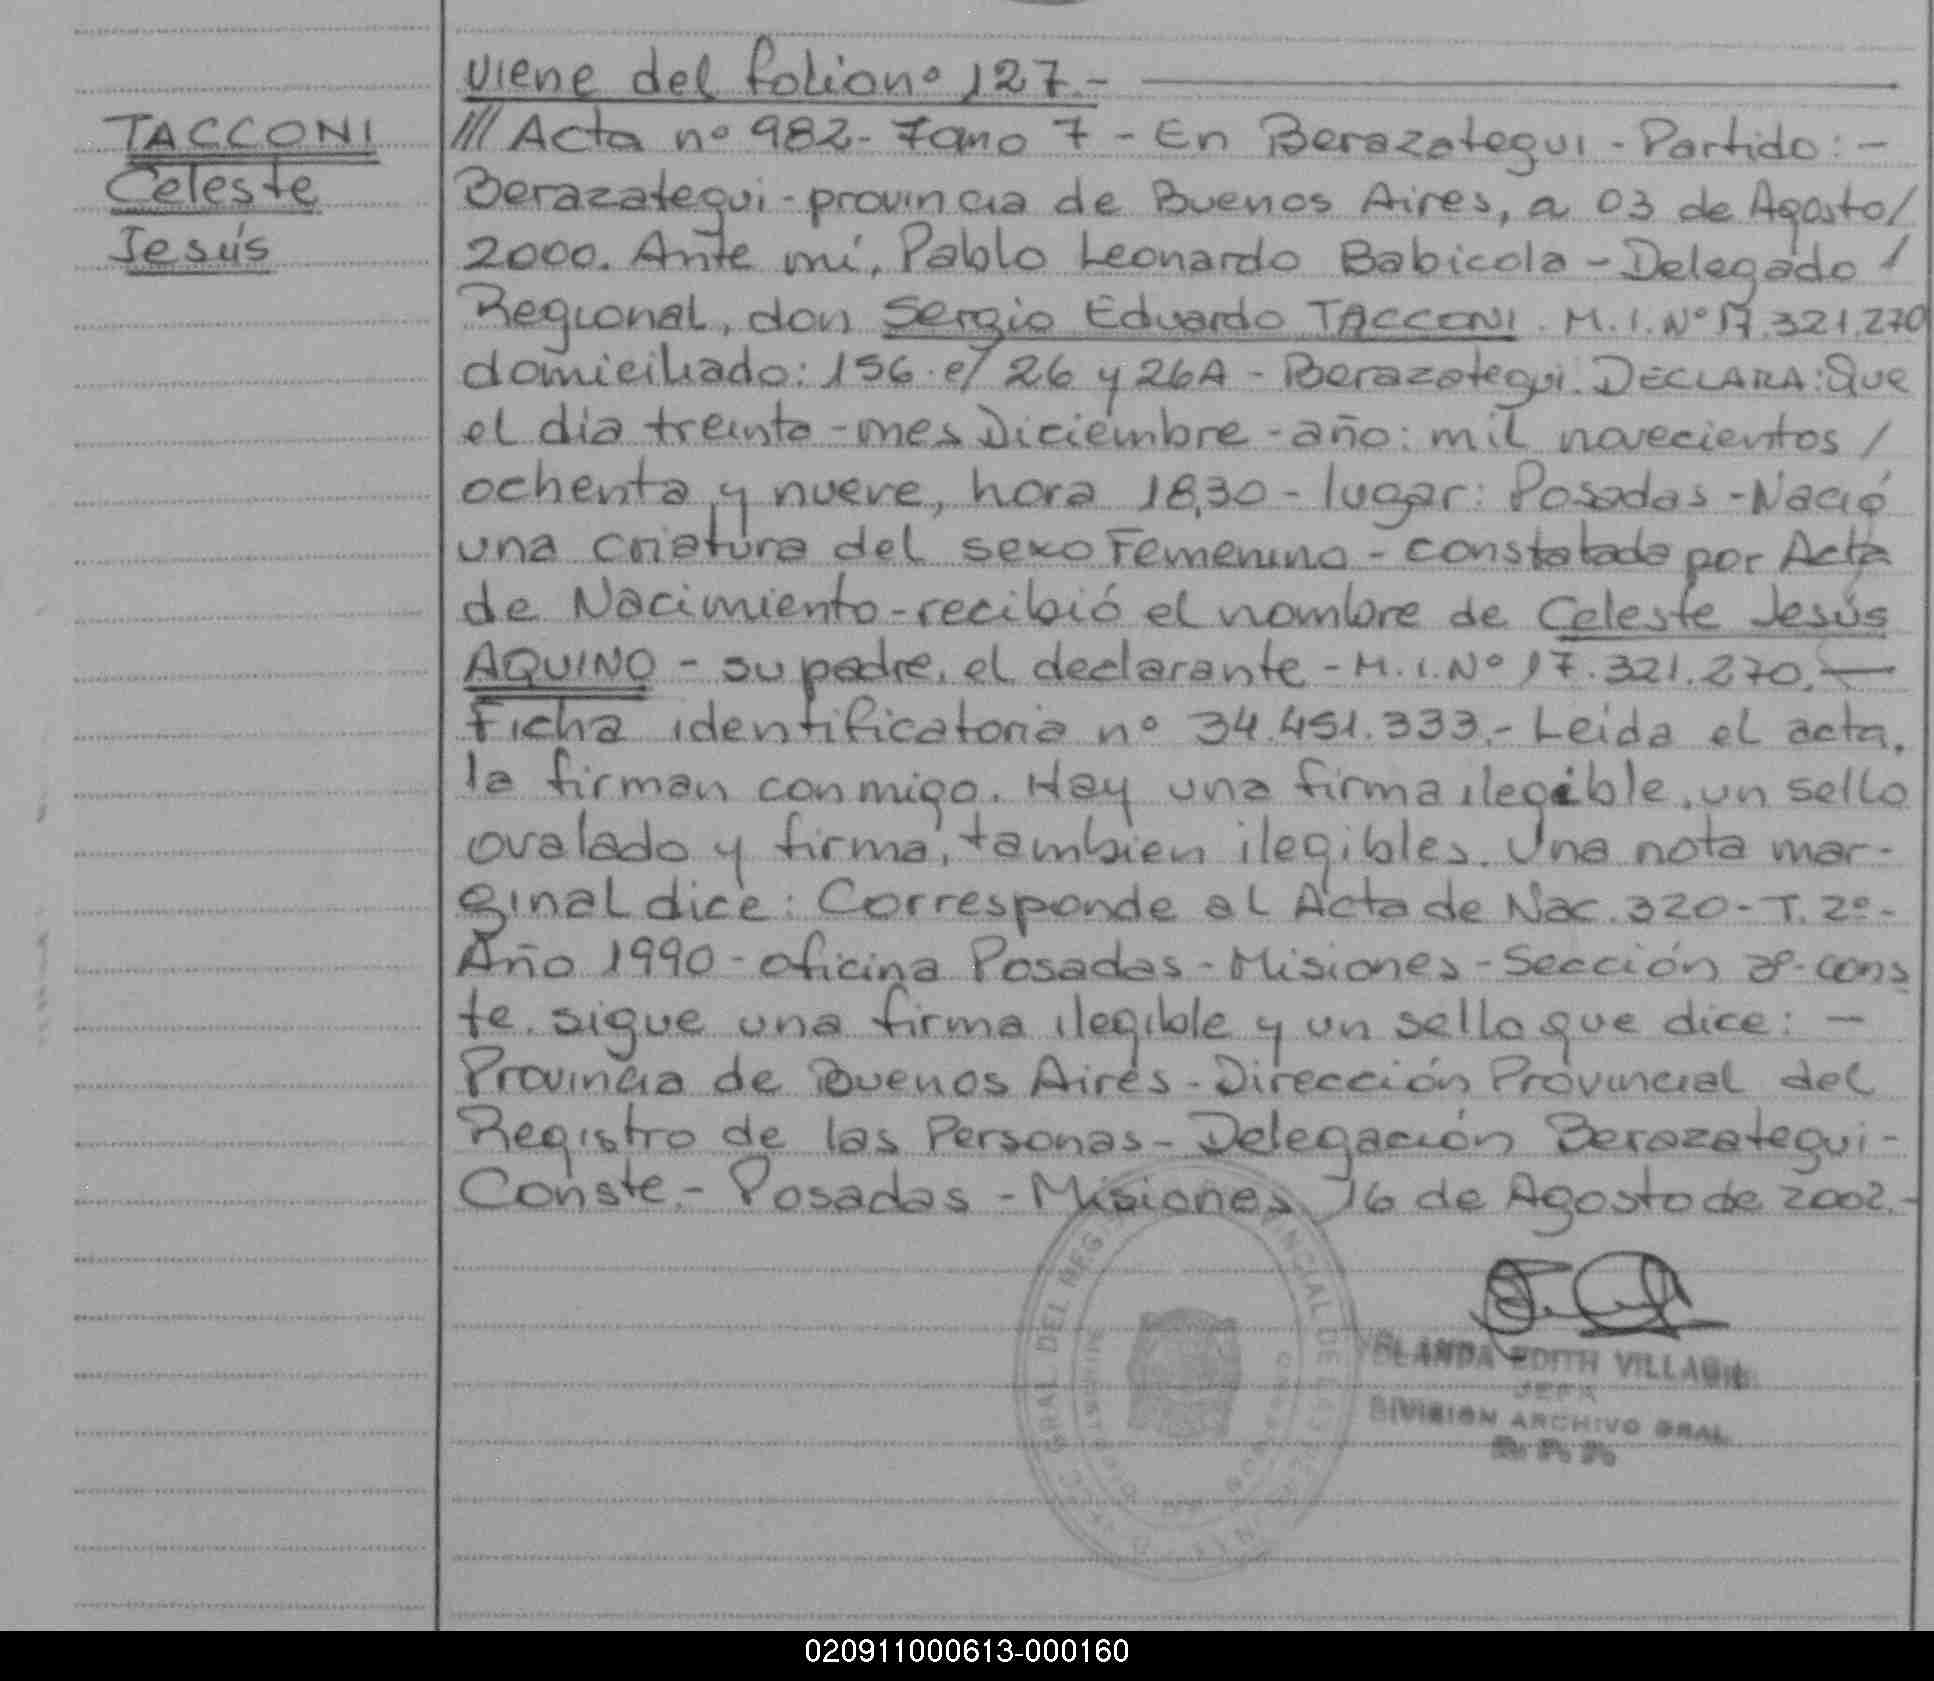 viene del folio nº 127.-
TACCONI
Celeste
Jesús
/// Acta nº 982 - Tomo 7 - En Berazategui - Partido: -
Berazategui - provincia de Buenos Aires, a 03 de Agosto/
2000. Ante mí, Pablo Leonardo Babicola - Delegado /
Regional, don Sergio Eduardo TACCONI. M.I.Nº 17.321.270
domiciliado: 156 e/ 26 y 26A - Berazategui. DECLARA: Que
el dia treinta - mes Diciembre - año: mil novecientos /
ochenta y nueve, hora 18,30 - lugar: Posadas - Nació
una criatura del sexo Femenino - constatado por Acta
de Nacimiento - recibió el nombre de Celeste Jesús
AQUINO - su padre, el declarante - M.I.Nº 17.321.270.-
Ficha identificatoria nº 34.451.333.- Leida el acta,
la firman conmigo. Hay una firma ilegible, un sello
ovalado y firma, tambien ilegibles. Una nota mar-
ginal dice: Corresponde al Acta de Nac. 320 - T. 2º -
Año 1990 - oficina Posadas - Misiones - Sección - cons
te. sigue una firma ilegible y un sello que dice: -
Provincia de Buenos Aires - Dirección Provincial del
Registro de las Personas - Delegación Berazategui -
Conste.- Posadas - Misiones, 16 de Agosto de 2002.-
EDITH
JEFA
DIVISION ARCHIVO GRAL.
GRAL DEL REG
INCIAL DE
020911000613-000160